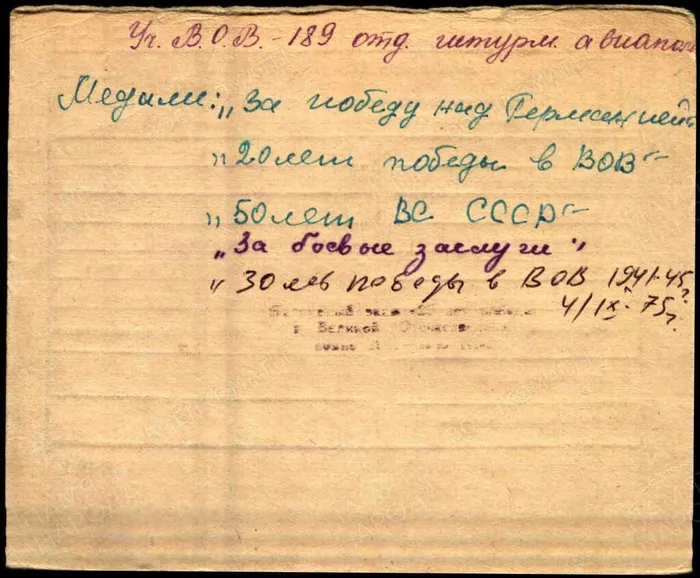 Уч. В.О.В. - 189 отд. штурм. авиапол
Медали: „За победу над Германией
„20 лет победы в ВОВ"
„50 лет ВС СССР"
„За боевые заслуги"
„30 лет победы в ВОВ 1941-45
4/IX-75г.
в Великой Отечественной